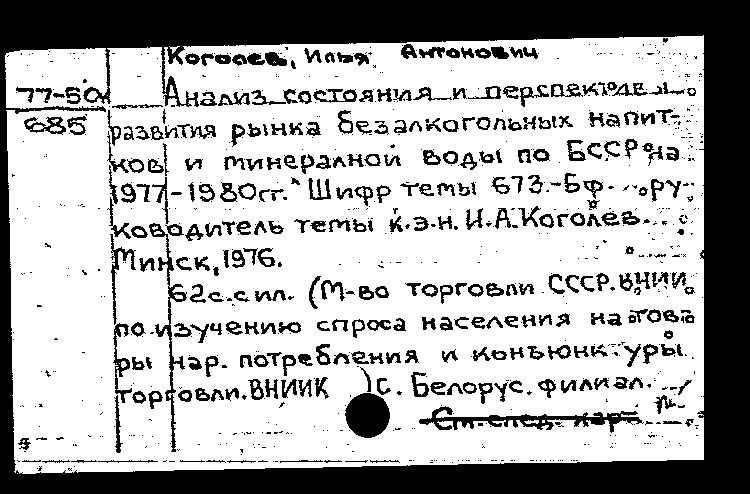 Коголев, Илья Антонович
77-50
685
Анализ состояния и перспективы
развития рынка безалкогольных напит-
ков и минералной воды по БССР на
1977-1980гг. Шифр темы 673.-Бф. ру-
ководитель темы к.э.н. И.А.Коголев.
Минск, 1976.
62с.с ил. (М-во торговли СССР. ВНИИ
по изучению спроса населения на това
ры нар. потребления и конъюнктуры
торговли. ВНИИК )С. Белорус. филиал.
См. след. кар